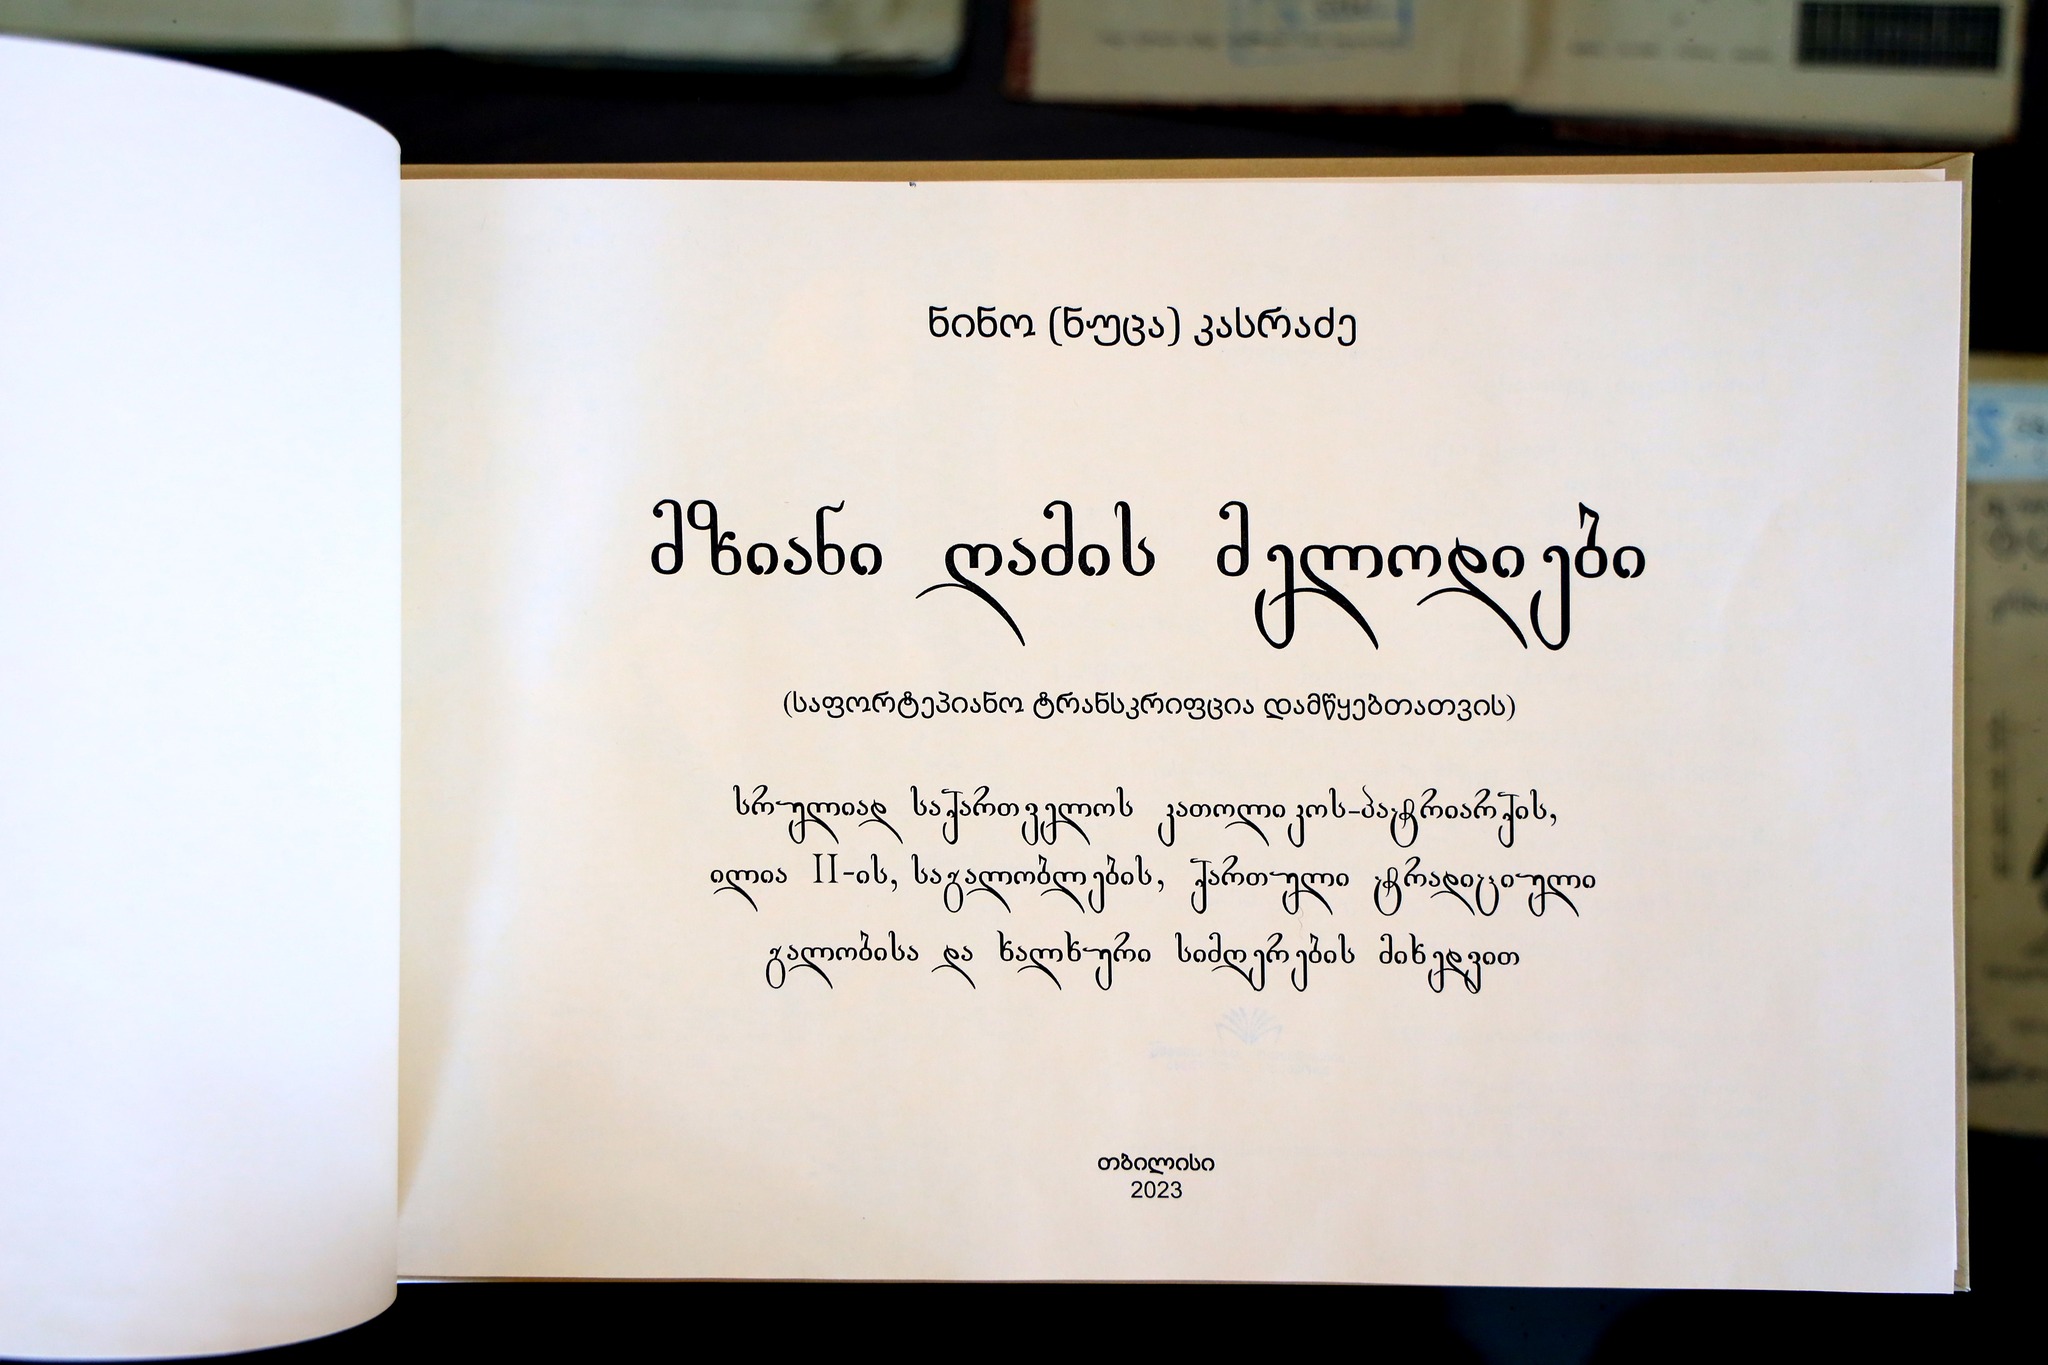 ნინო (ნუცა) კასრაძე
მზიანი ღამის მელოდიები
(საფორტეპიანო ტრანსკრიფცია დამწყებთათვის)
სრულიად საქართველოს კათოლიკოს-პატრიარქის,
ილია II-ის, საგალობლების, ქართული ტრადიციული
გალობისა და ხალხური სიმღერების მიხედვით
თბილისი
2023